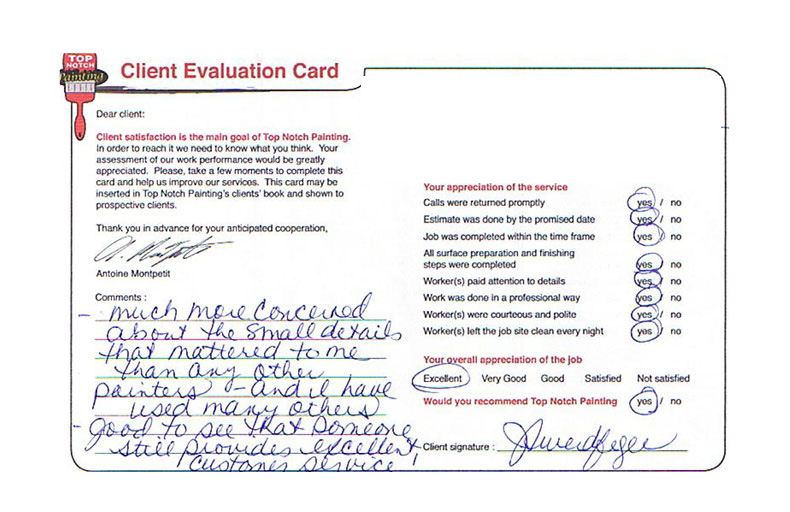 TOP
NOTCH
Painting
Client Evaluation Card
Dear client:
Client satisfaction is the main goal of Top Notch Painting.
In order to reach it we need to know what you think. Your
assessment of our work performance would be greatly
appreciated. Please, take a few moments to complete this
card and help us improve our services. This card may be
inserted in Top Notch Painting's clients' book and shown to
prospective clients.
Thank you in advance for your anticipated cooperation,
Antoine Montpetit
Comments :
- much more concerned
about the small details
that mattered to me
than any other
painters - and I have
used many others
- good to see that someone
still provides excellent
customer service!
Your appreciation of the service
Calls were returned promptly yes / no
Estimate was done by the promised date yes / no
Job was completed within the time frame yes / no
All surface preparation and finishing
steps were completed yes / no
Worker(s) paid attention to details yes / no
Work was done in a professional way yes / no
Worker(s) were courteous and polite yes / no
Worker(s) left the job site clean every night yes / no
Your overall appreciation of the job
Excellent Very Good Good Satisfied Not satisfied
Would you recommend Top Notch Painting yes / no
Client signature :